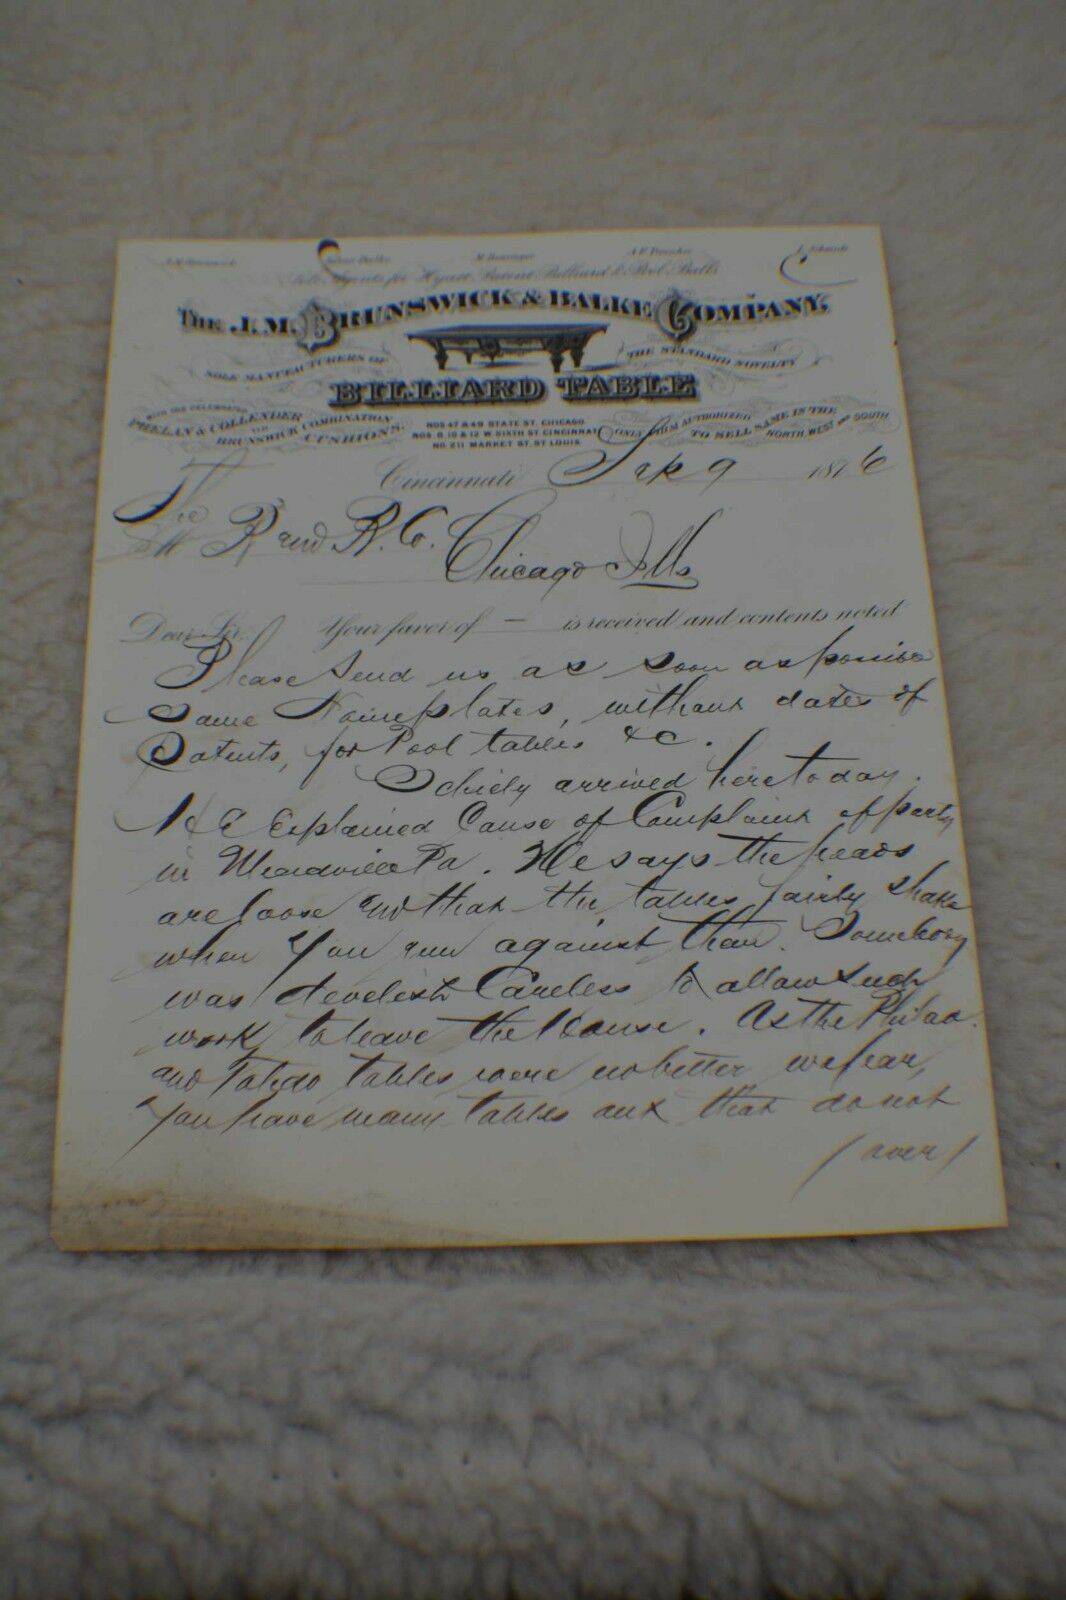 J. M. Brunswick Julius Balke M. Bensinger A. F. Troescher
Sole Agents for Hyatt Patent Billiard & Pool Balls
THE J. M. BRUNSWICK & BALKE COMPANY,
SOLE MANUFACTURERS OF THE STANDARD NOVELTY
BILLIARD TABLE
WITH THE CELEBRATED
PHELAN & COLLENDER
OR
BRUNSWICK COMBINATION
CUSHIONS.
NOS 47 & 49 STATE ST. CHICAGO.
NOS. 8, 10 & 12 W. SIXTH ST. CINCINNATI
NO. 211 MARKET ST. ST LOUIS.
ONLY FIRM AUTHORIZED
TO SELL SAME IN THE
NORTH, WEST AND SOUTH
Cincinnati 9 1876
The
M B and B. Co.
Chicago Ills
Dear Sir. Your favor of — is received and contents noted
Please send us as soon as possible
Some Nameplates, without dates of
Patents, for Pool tables &c.
arrived here today.
& Explained Cause of Complaint of party
in Meadville Pa. He says the heads
are loose and that the tables fairly shake
when you run against them. Somebody
was develish Careless to allow such
work to leave the House. As the Philad.
and Toledo tables were no better we fear,
you have many tables out that do not
(over)